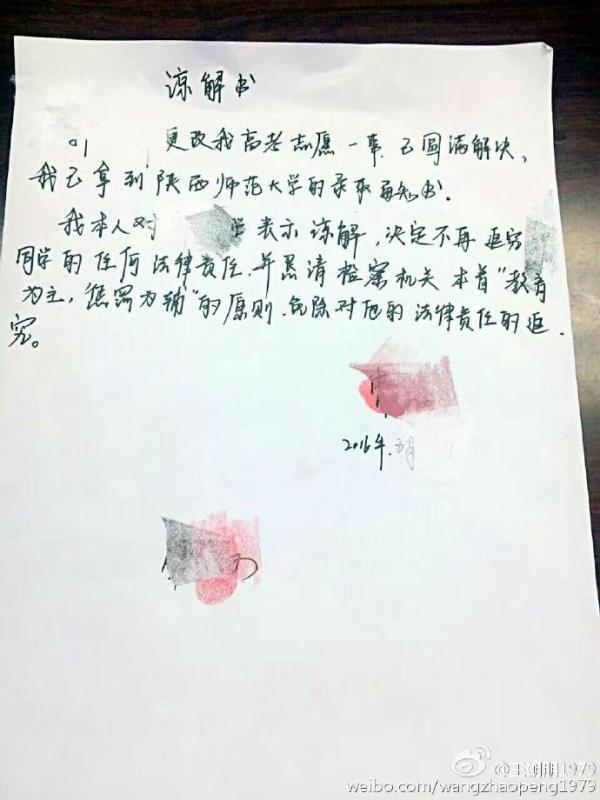 谅解书
更改我高考志愿一事已圆满解决，
我已拿到陕西师范大学的录取通知书.
我本人对 学表示谅解，决定不再追究
同学的任何法律责任.并恳请检察机关本着“教育
为主，惩罚为辅”的原则.免除对他的法律责任的追
究。
2016年.
@王朝朋1979
weibo.com/wangzhaopeng1979